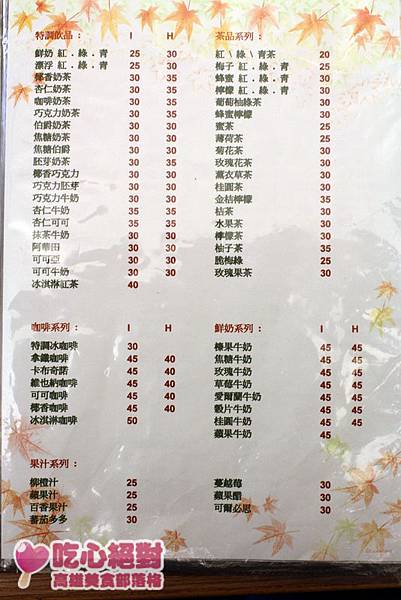 特調飲品： I H
鮮奶 紅．綠．青 25 30
漂浮 紅．綠．青 25 30
椰香奶茶 30 35
杏仁奶茶 30 35
咖啡奶茶 30 35
巧克力奶茶 30 35
伯爵奶茶 30 30
焦糖奶茶 30 30
焦糖伯爵 30 30
胚芽奶茶 30 30
椰香巧克力 30 30
巧克力胚芽 30 35
巧克力牛奶 30 30
杏仁牛奶 30 35
杏仁可可 30 35
抹茶牛奶 30 30
阿華田 30 30
可可亞 30 30
可可牛奶 30 30
冰淇淋紅茶 40
茶品系列：
紅\綠\青茶 20
梅子 紅．綠．青 25
蜂蜜 紅．綠．青 30
檸檬 紅．綠．青 30
葡萄柚綠茶 30
蜂蜜檸檬 30
蜜茶 25
薄荷茶 25
菊花茶 30
玫瑰花茶 30
薰衣草茶 30
桂圓茶 30
金桔檸檬 35
桔茶 30
水果茶 30
檸檬茶 30
柚子茶 35
脆梅綠 25
玫瑰果茶 30
咖啡系列： I H
特調冰咖啡 30
拿鐵咖啡 45 40
卡布奇諾 45 40
維也納咖啡 45 40
可可咖啡 45 40
椰香咖啡 45 40
冰淇淋咖啡 50
鮮奶系列： I H
榛果牛奶 45 45
焦糖牛奶 45 45
玫瑰牛奶 45 45
草莓牛奶 45 45
愛爾蘭牛奶 45 45
穀片牛奶 45 45
桂圓牛奶 45 45
蘋果牛奶 45
果汁系列：
柳橙汁 25
蘋果汁 25
百香果汁 25
蕃茄多多 30
蔓越莓 30
蘋果醋 30
可爾必思 30
吃心絕對
高雄美食部落格